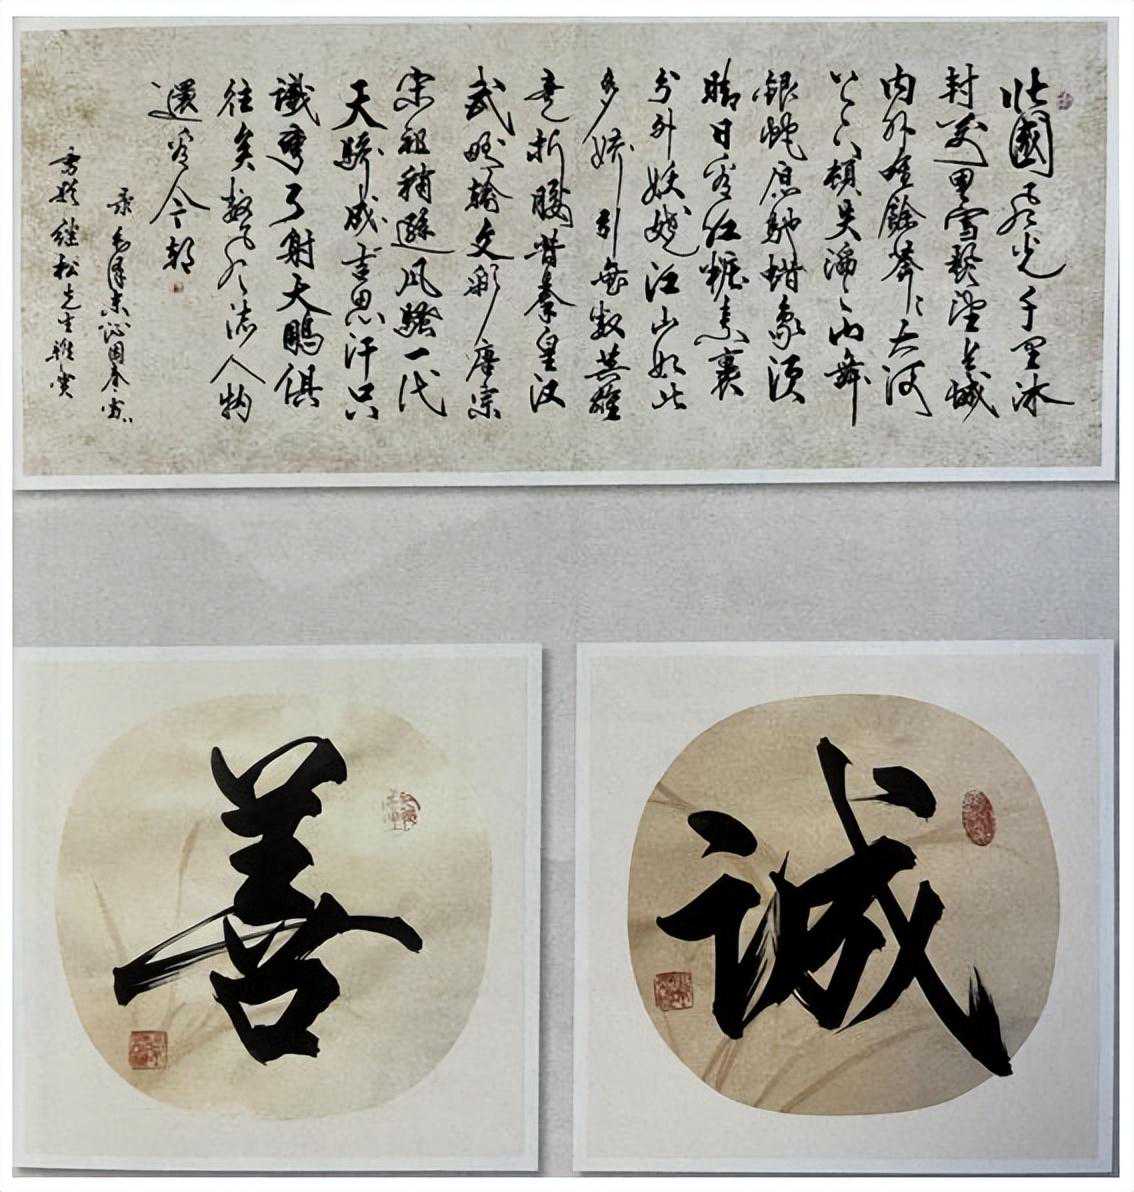 北國风光千里冰
封万里雪飘望长城
内外惟餘莽々大河
上下顿失滔々山舞
银蛇原驰蜡象须
晴日看红妆素裹
分外妖娆江山如此
多娇引無数英雄
竞折腰昔秦皇汉
武略输文彩唐宗
宋祖稍逊风骚一代
天骄成吉思汗只
識弯弓射大鵬俱
往矣数风流人物
還看今朝
录毛泽东沁园春雪
继松先生雅赏
善
诚